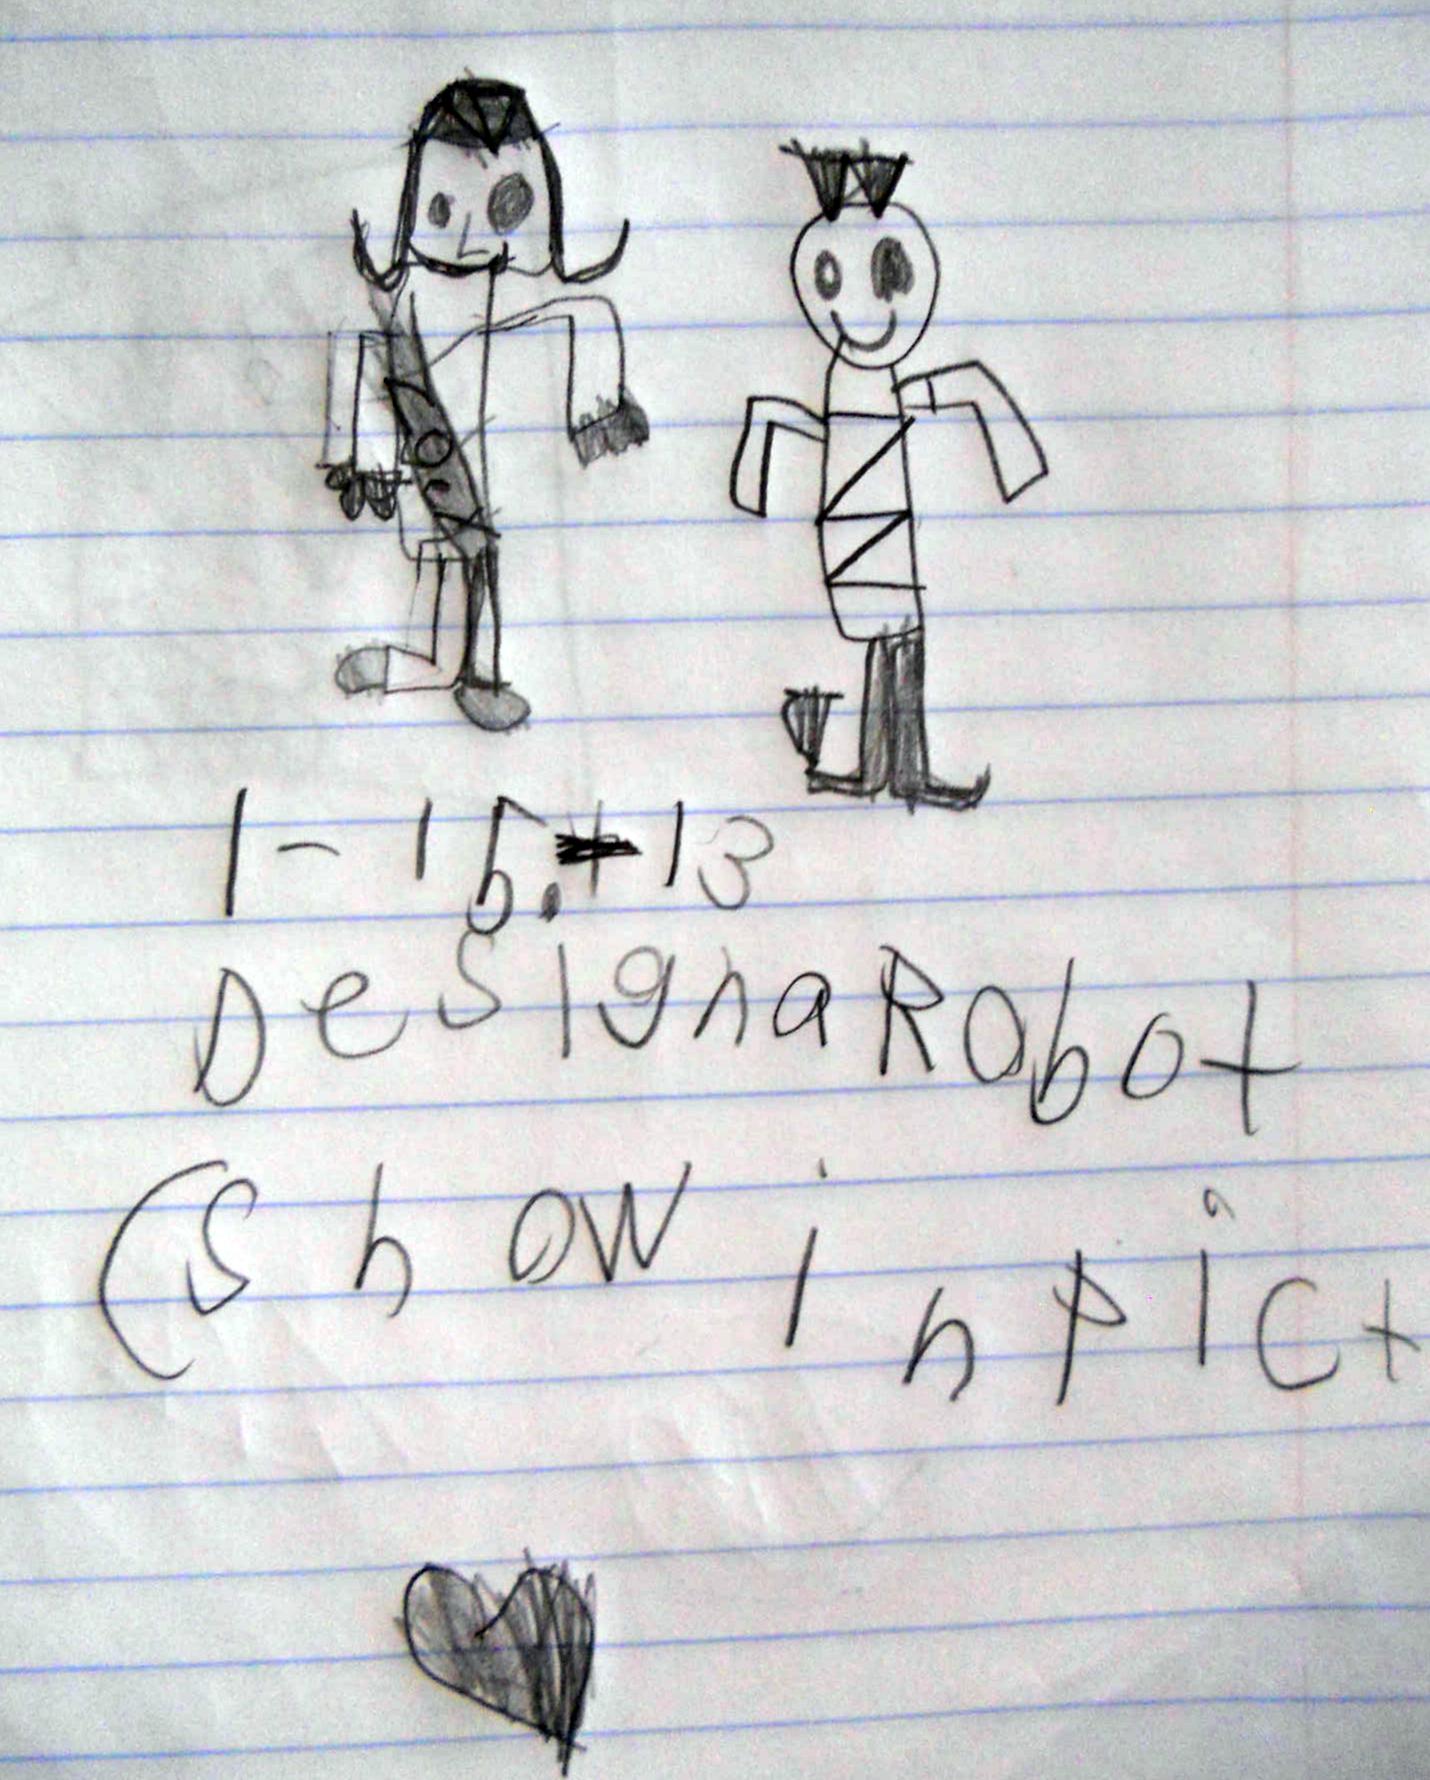 1-15.13
Design a Robot
(Show in pict